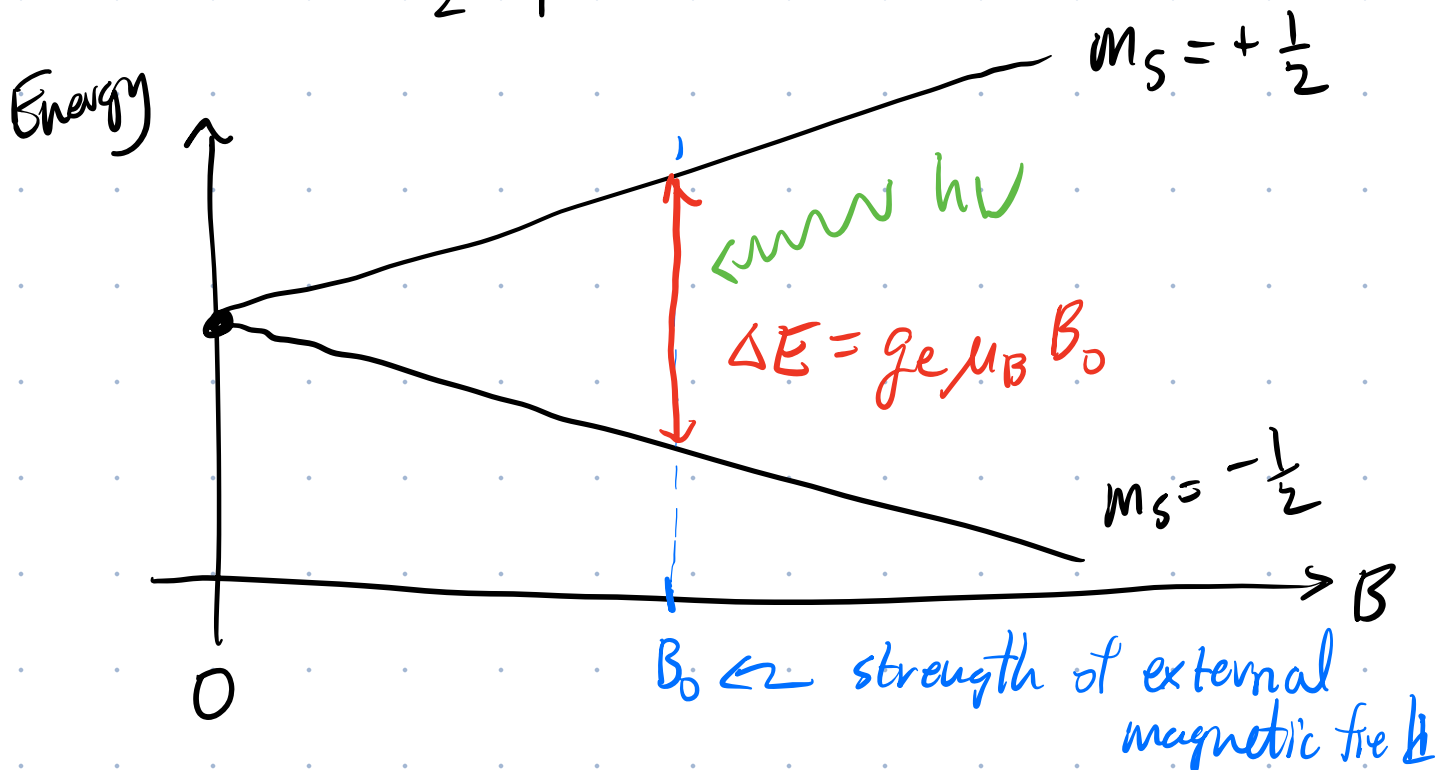 2
m_s = + 1/2
Energy
hν
ΔE = g_e μ_B B_0
m_s = - 1/2
B
B_0 ← strength of external
magnetic field
0